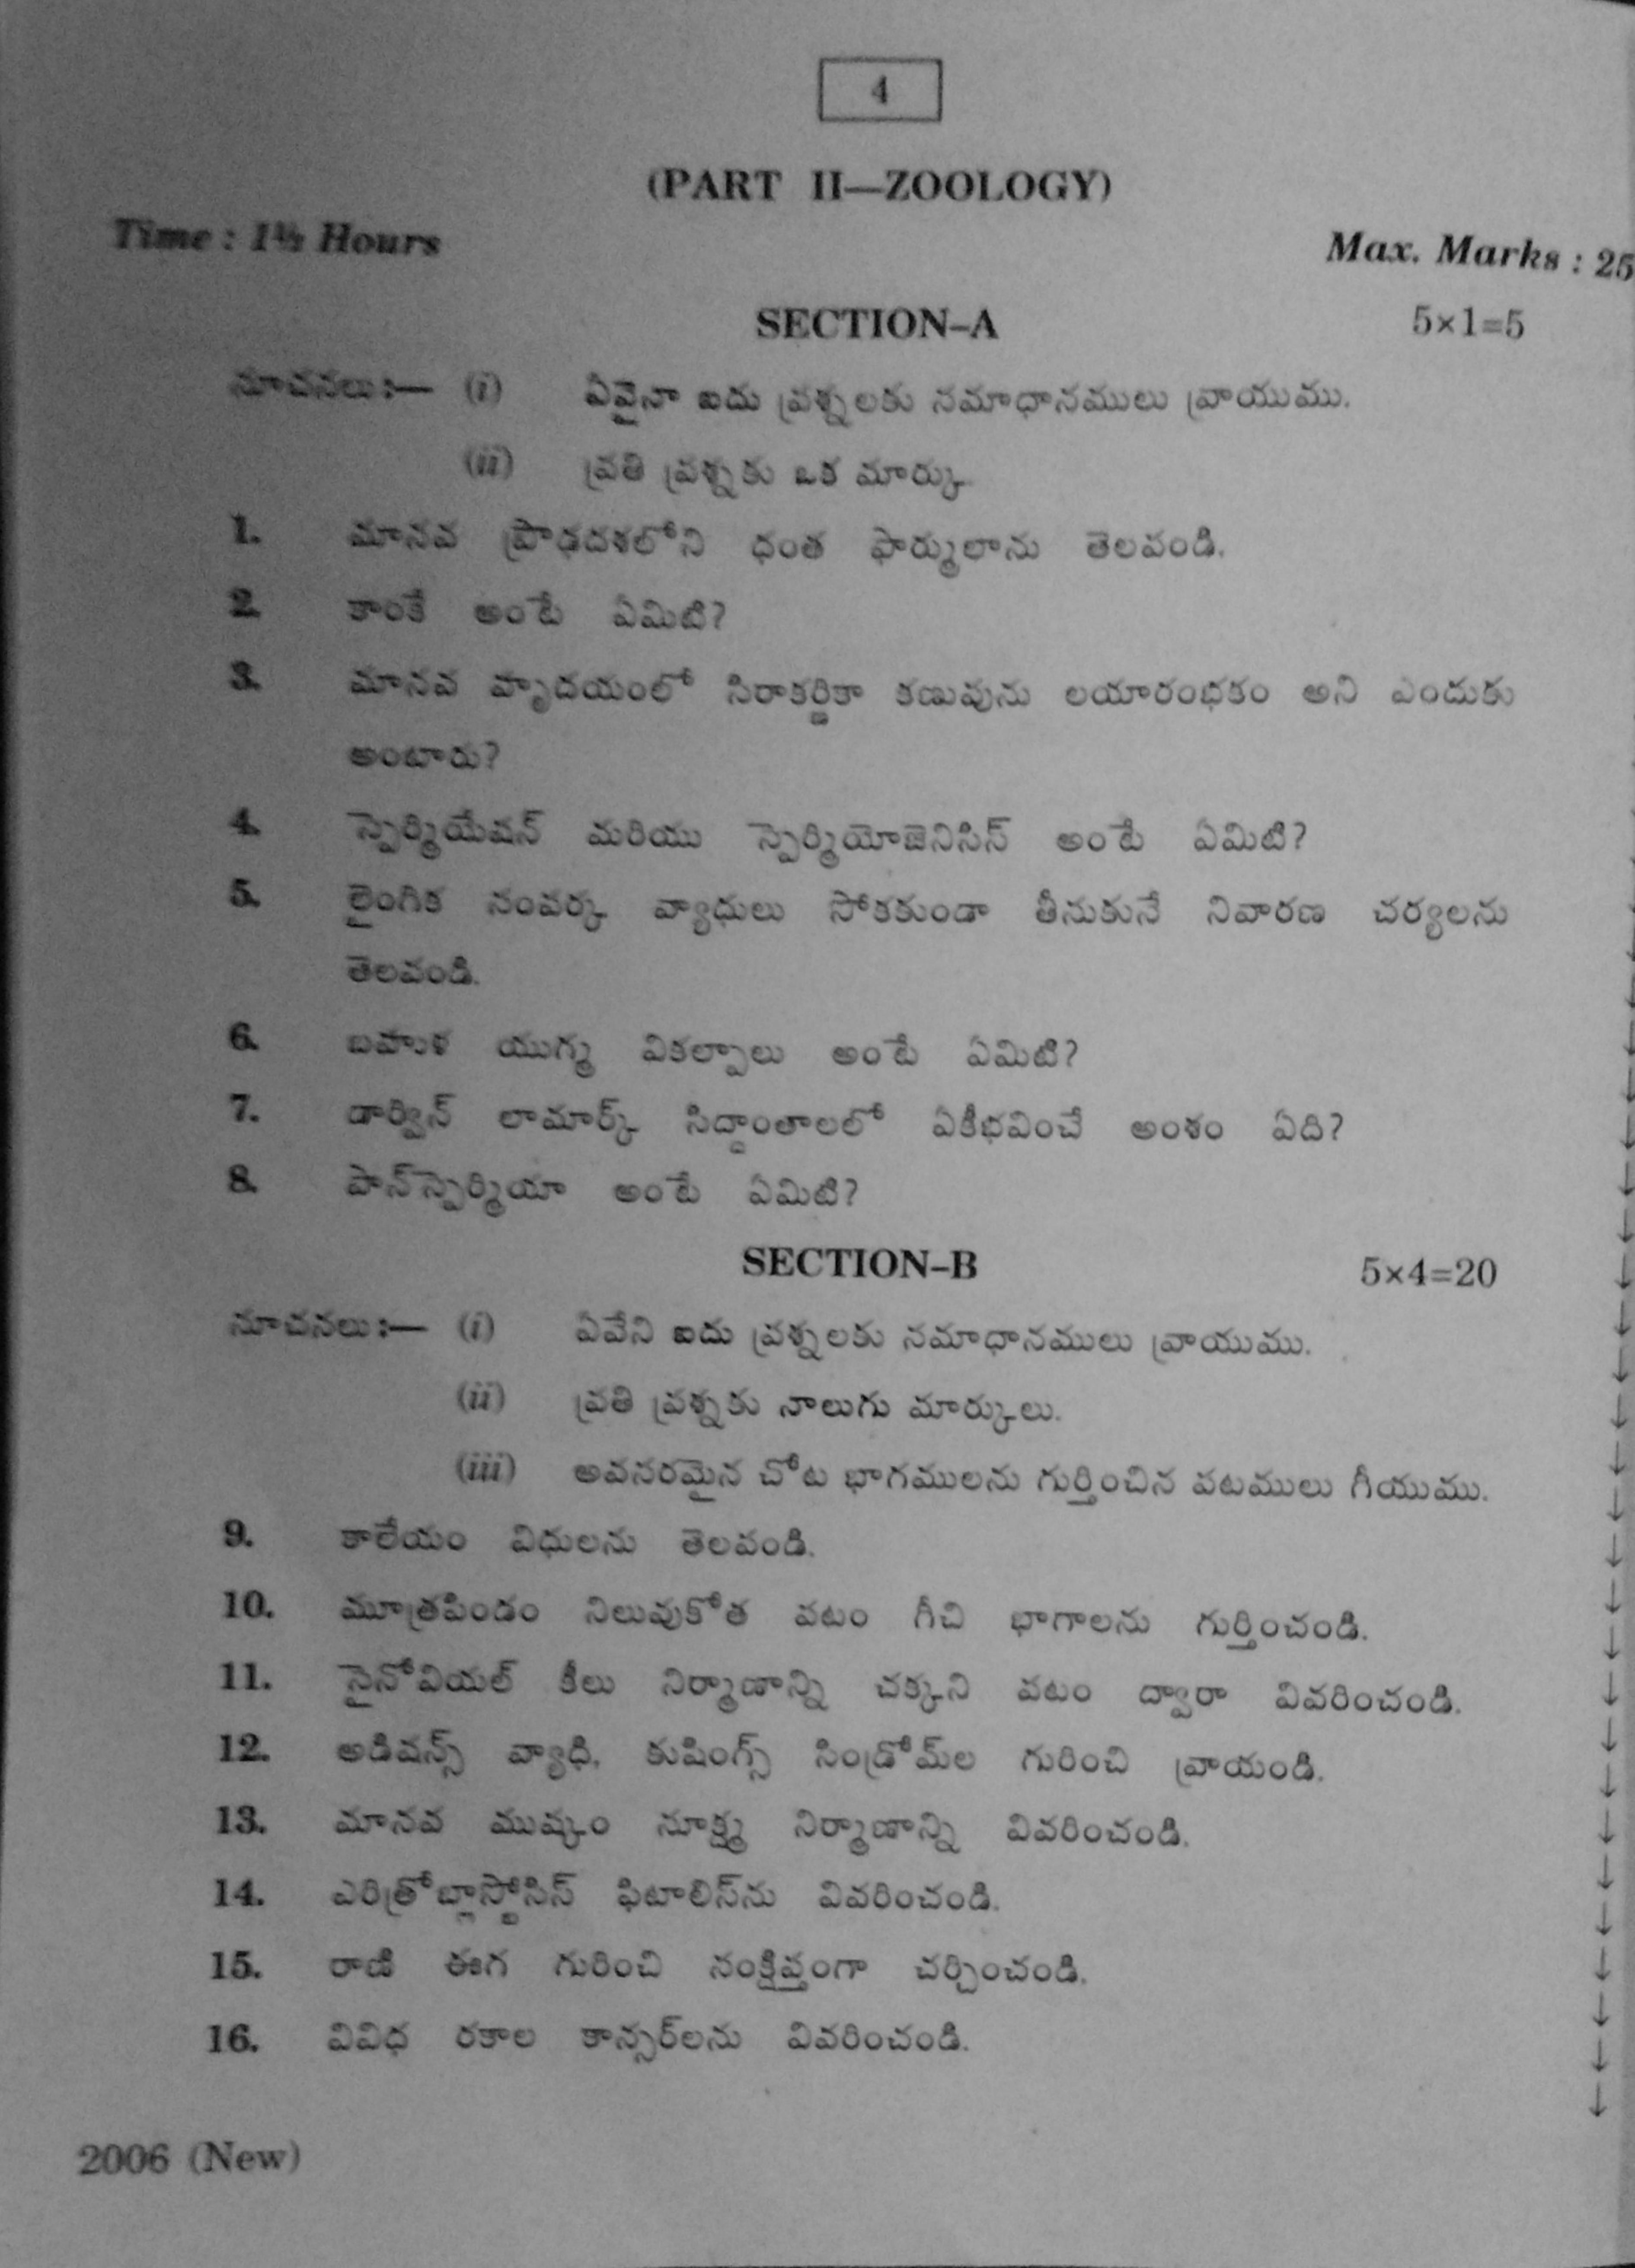 4
(PART II—ZOOLOGY)
Time : 1½ Hours
Max. Marks : 25
SECTION–A 5×1=5
సూచనలు :— (i) ఏవైనా ఐదు ప్రశ్నలకు సమాధానములు వ్రాయుము.
(ii) ప్రతి ప్రశ్నకు ఒక మార్కు.
1. మానవ ప్రౌఢదశలోని దంత ఫార్ములాను తెలపండి.
2. కాంకే అంటే ఏమిటి?
3. మానవ హృదయంలో సిరాకర్ణికా కణువును లయారంభకం అని ఎందుకు
అంటారు?
4. స్పెర్మియేషన్ మరియు స్పెర్మియోజెనిసిస్ అంటే ఏమిటి?
5. లైంగిక సంపర్క వ్యాధులు సోకకుండా తీసుకునే నివారణ చర్యలను
తెలపండి.
6. బహుళ యుగ్మ వికల్పాలు అంటే ఏమిటి?
7. డార్విన్ లామార్క్ సిద్ధాంతాలలో ఏకీభవించే అంశం ఏది?
8. పాన్‌స్పెర్మియా అంటే ఏమిటి?
SECTION–B 5×4=20
సూచనలు :— (i) ఏవేని ఐదు ప్రశ్నలకు సమాధానములు వ్రాయుము.
(ii) ప్రతి ప్రశ్నకు నాలుగు మార్కులు.
(iii) అవసరమైన చోట భాగములను గుర్తించిన పటములు గీయుము.
9. కాలేయం విధులను తెలపండి.
10. మూత్రపిండం నిలువుకోత పటం గీచి భాగాలను గుర్తించండి.
11. సైనోవియల్ కీలు నిర్మాణాన్ని చక్కని పటం ద్వారా వివరించండి.
12. అడిషన్స్ వ్యాధి, కుషింగ్స్ సిండ్రోమ్‌ల గురించి వ్రాయండి.
13. మానవ ముష్కం సూక్ష్మ నిర్మాణాన్ని వివరించండి.
14. ఎరిత్రోబ్లాస్టోసిస్ ఫిటాలిస్‌ను వివరించండి.
15. రాణి ఈగ గురించి సంక్షిప్తంగా చర్చించండి.
16. వివిధ రకాల కాన్సర్‌లను వివరించండి.
2006 (New)